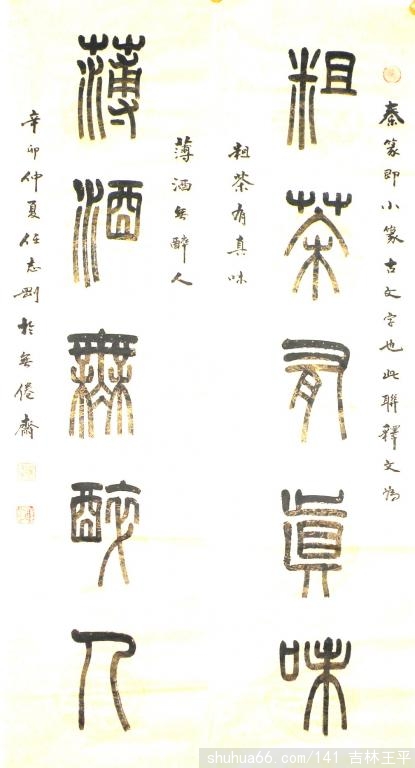 秦篆即小篆古文字也此聯釋文為
粗茶有真味
粗茶有真味
薄酒無醉人
薄酒無醉人
辛卯仲夏任志剛於無倦齋
shuhua66.com/141 吉林王平